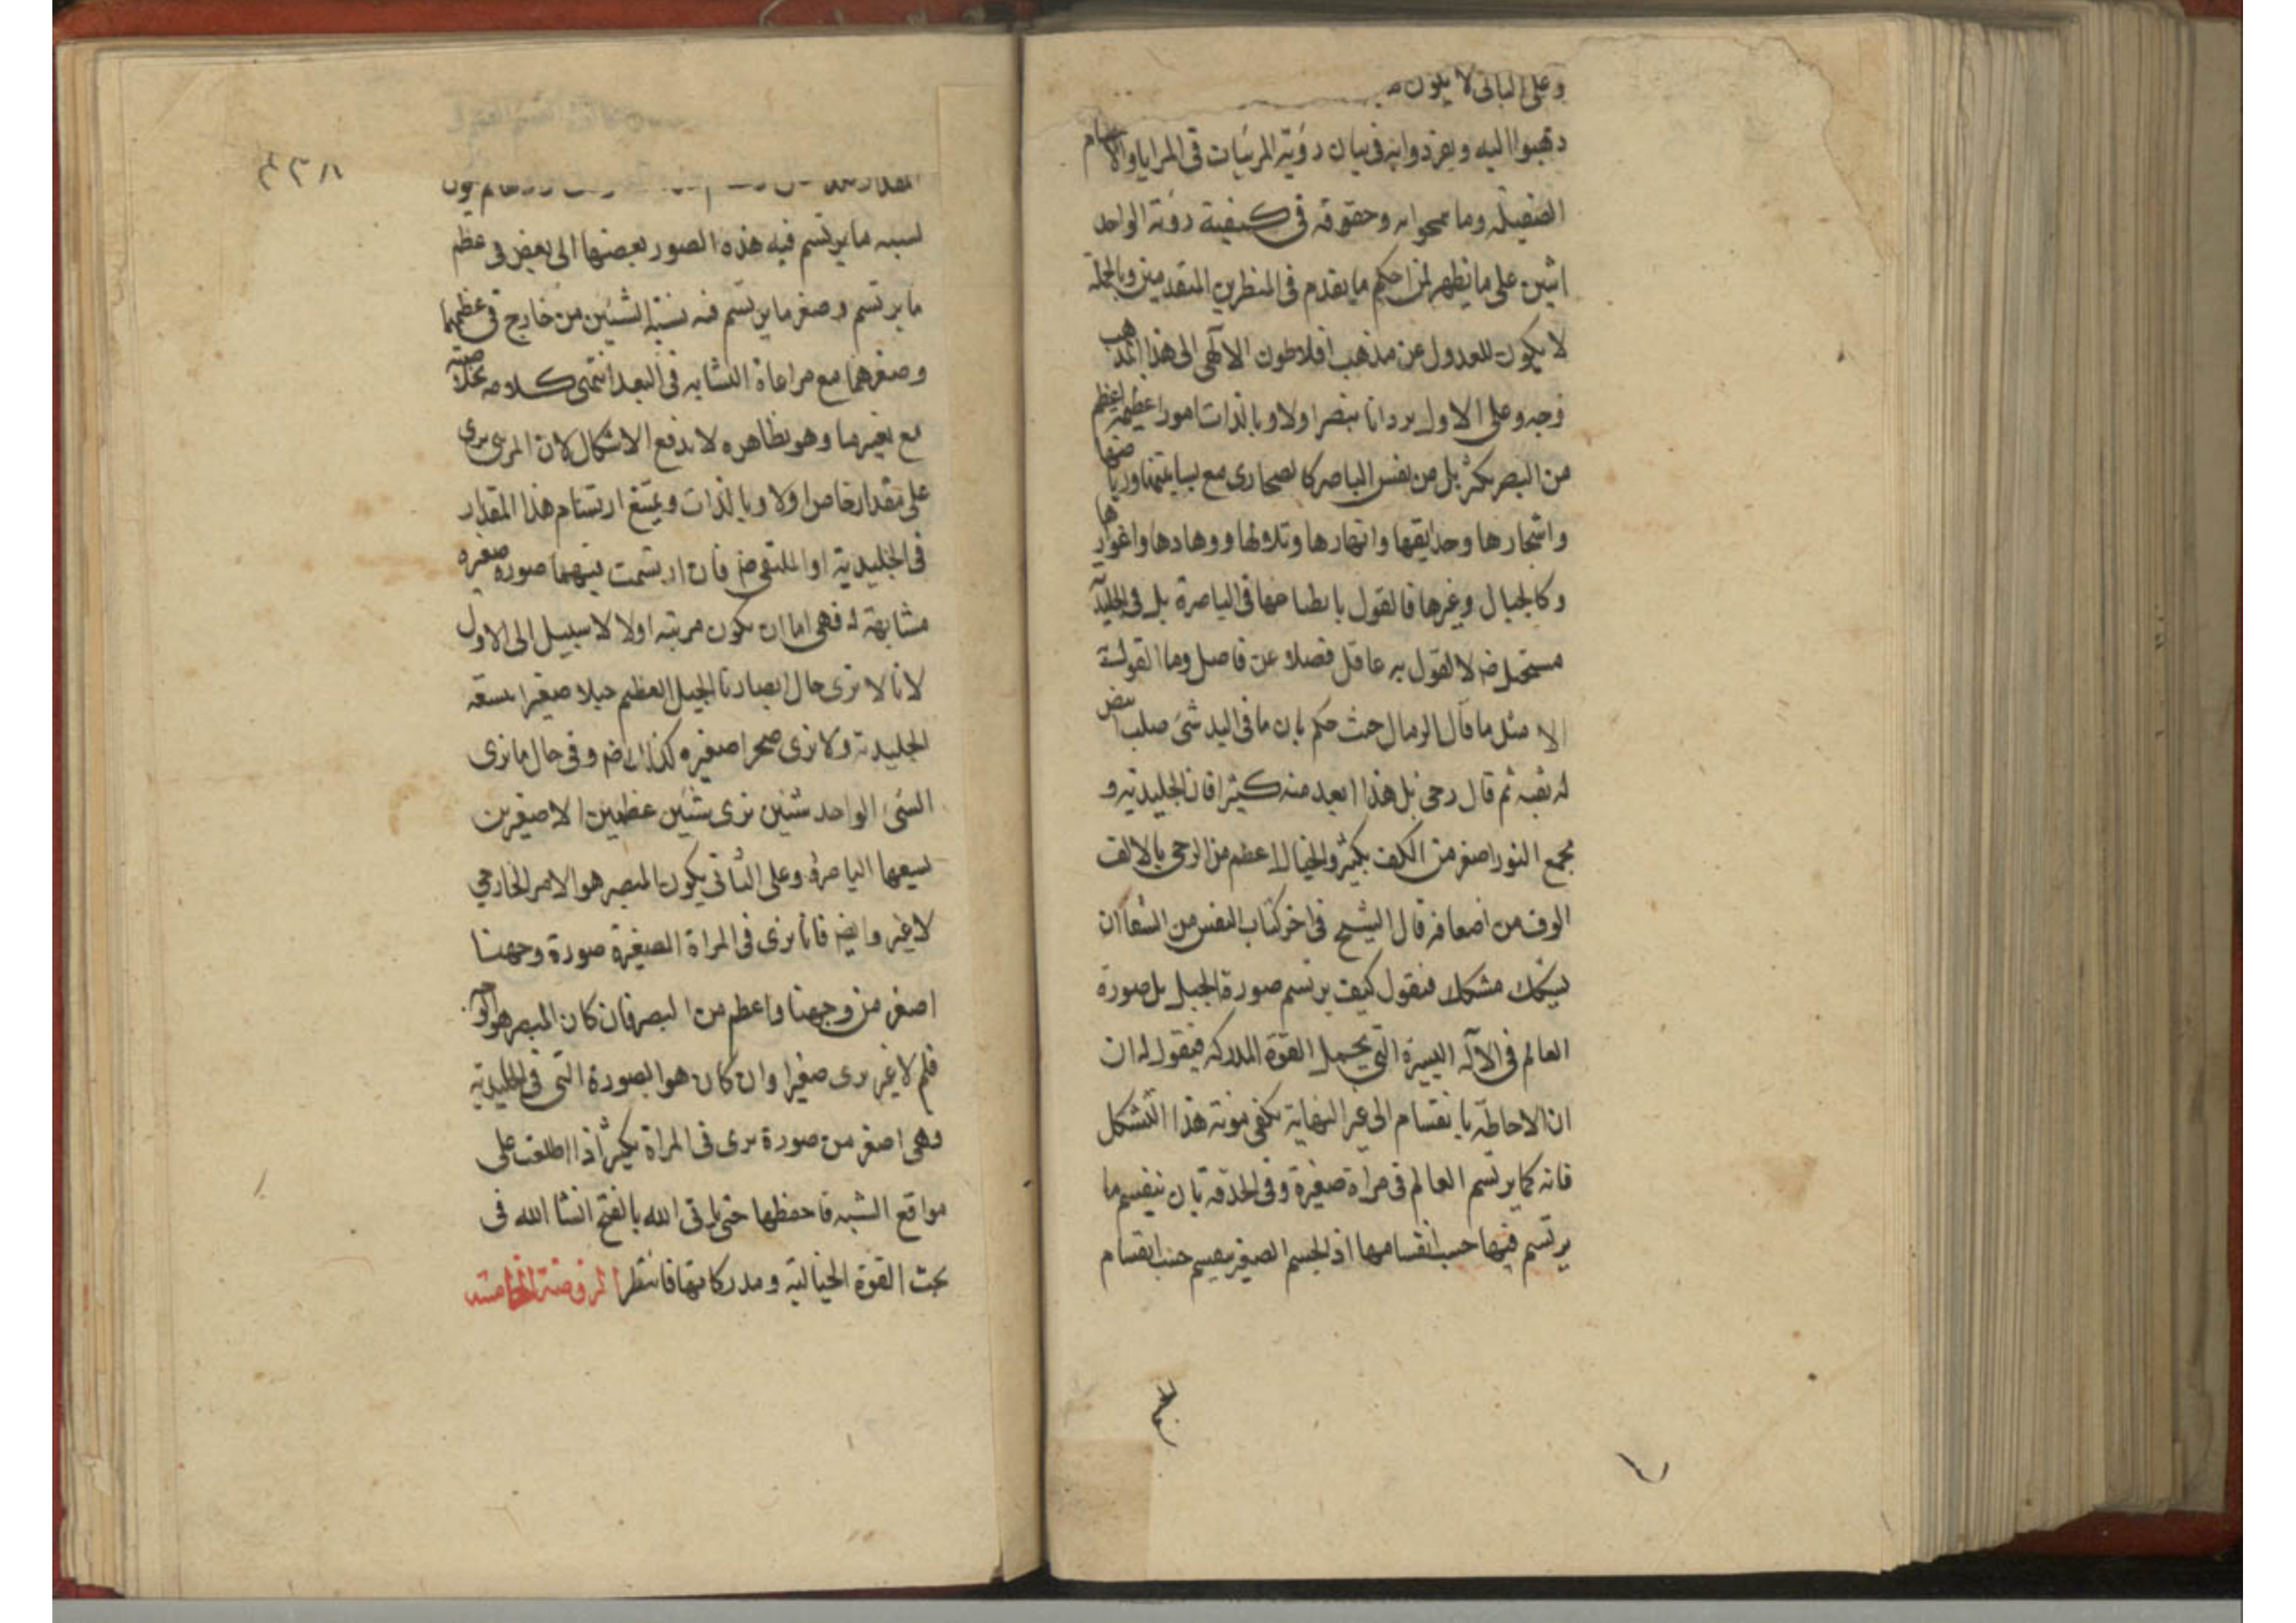 وعلى الثانى لا يكون
ذهبوا اليه وتفردوا به فى بيان رؤية المرئيات فى المرايا والاجسام
الصقيلة وما وحققوه فى كيفية رؤية الواحد
اثنين على ما يظهر لمن احكم ما تقدم فى المنظرين المتقدمين وبالجملة
لا يكون للعدول عن مذهب افلاطون الآلهى الى هذا المذهب
وجه وعلى الاول يرد انا نبصر اولا وبالذات امورا عظيمة اعظم
من البصر بكثير بل من نفس الباصر كالصحارى مع بساتينها ورياضها
واشجارها وحدايقها وانهارها وتلالها ووهادها واغوارها
وكالجبال وغيرها فالقول بانطباعها فى الباصرة بل فى الجليدية
مستحيل لا يقول به عاقل فضلا عن فاضل وما القول به
الا مثل ما قال الرمال حيث حكم بان ما فى اليد شئ صلب ابيض
له ثقبة ثم قال رحى بل هذا ابعد منه كثيرا فان الجليدية و
مجمع النور اصغر من الكف بكثير والجبال اعظم من الرحى بالالف
الوف من اضعافه قال الشيخ فى اخر كتاب النفس من الشفا ان
ليشكك مشكك فيقول كيف يرتسم صورة الجبل بل صورة
العالم فى الآلة اليسيرة التى يحمل القوة المدركة فيقول له ان
ان الاحاطة بانقسام الى غير النهاية تكفى مؤنة هذا التشكل
فانه كما يرتسم العالم فى مرآة صغيرة وفى الحدقة بان ينقسم ما
يرتسم فيها حسب انقسامها اذ الجسم الصغير ينقسم حسب انقسام
الجسم
٤٣٨١
لنسبة ما يرتسم فيه هذه الصور بعضها الى بعض فى عظم
ما يرتسم وصغر ما يرتسم فيه نسبة الشيئين من خارج فى عظمهما
وصغرهما مع مراعاة التشابه فى البعد انتهى كلامه بخلاصته
مع تغيير ما وهو بظاهره لا يدفع الاشكال لان المرئى يرى
على مقدار خاص اولا وبالذات ويمتنع ارتسام هذا المقدار
فى الجليدية او الملتقى فان ارتسمت فيهما صورة صغيرة
مشابهة له فهى اما ان يكون مرئية اولا لا سبيل الى الاول
لانا لا نرى حال ابصارنا الجبل العظيم جبلا صغيرا يسعه
الجليدية ولا نرى صحرا صغيرة كذلك وفى حال ما نرى
الشئ الواحد شيئين نرى شيئين عظيمين لا صغيرين
يسعهما الباصرة وعلى الثانى يكون المبصر هو الامر الخارجى
لا غير وايضا فانا نرى فى المرآة الصغيرة صورة وجهنا
اصغر من وجهنا واعظم من البصر فان كان المبصر هو الوجه
فلم لا غير يرى صغيرا وان كان هو الصورة التى فى الجليدية
وهى اصغر من صورة يرى فى المراة بكثير اذا اطلعت على
مواقع الشبه فاحفظها حتى ياتى الله بالفتح انشا الله فى
بحث القوة الخيالية ومدركاتها فانتظر الروضة الخامسة